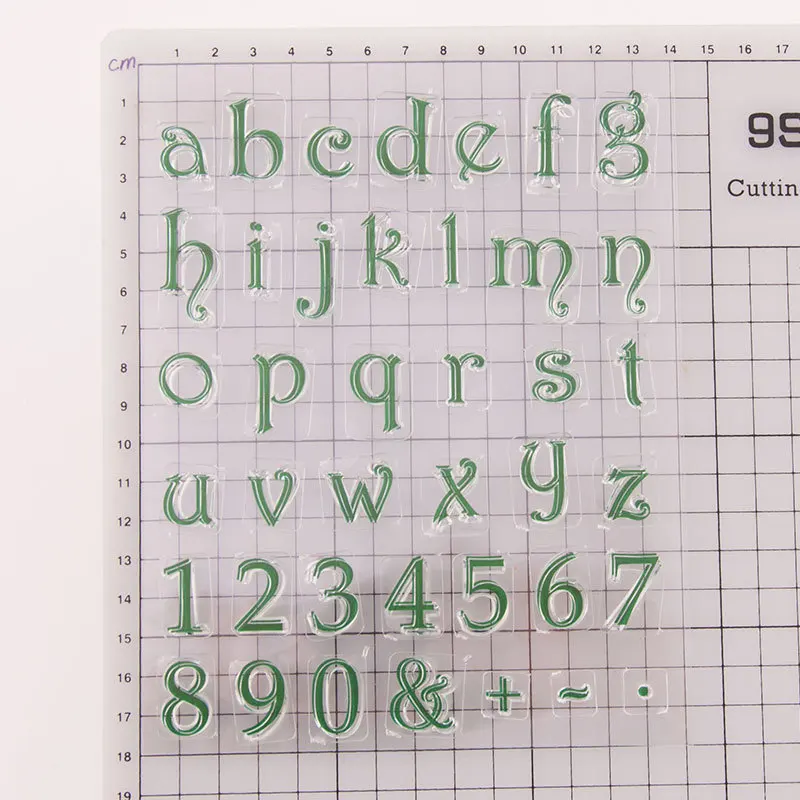 1 2 3 4 5 6 7 8 9 10 11 12 13 14 15 16 17
cm
1
2
3
4
5
6
7
8
9
10
11
12
13
14
15
16
17
18
19
a b c d e f g
h i j k l m n
o p q r s t
u v w x y z
1 2 3 4 5 6 7
8 9 0 & + ~ ·
9S
Cuttin